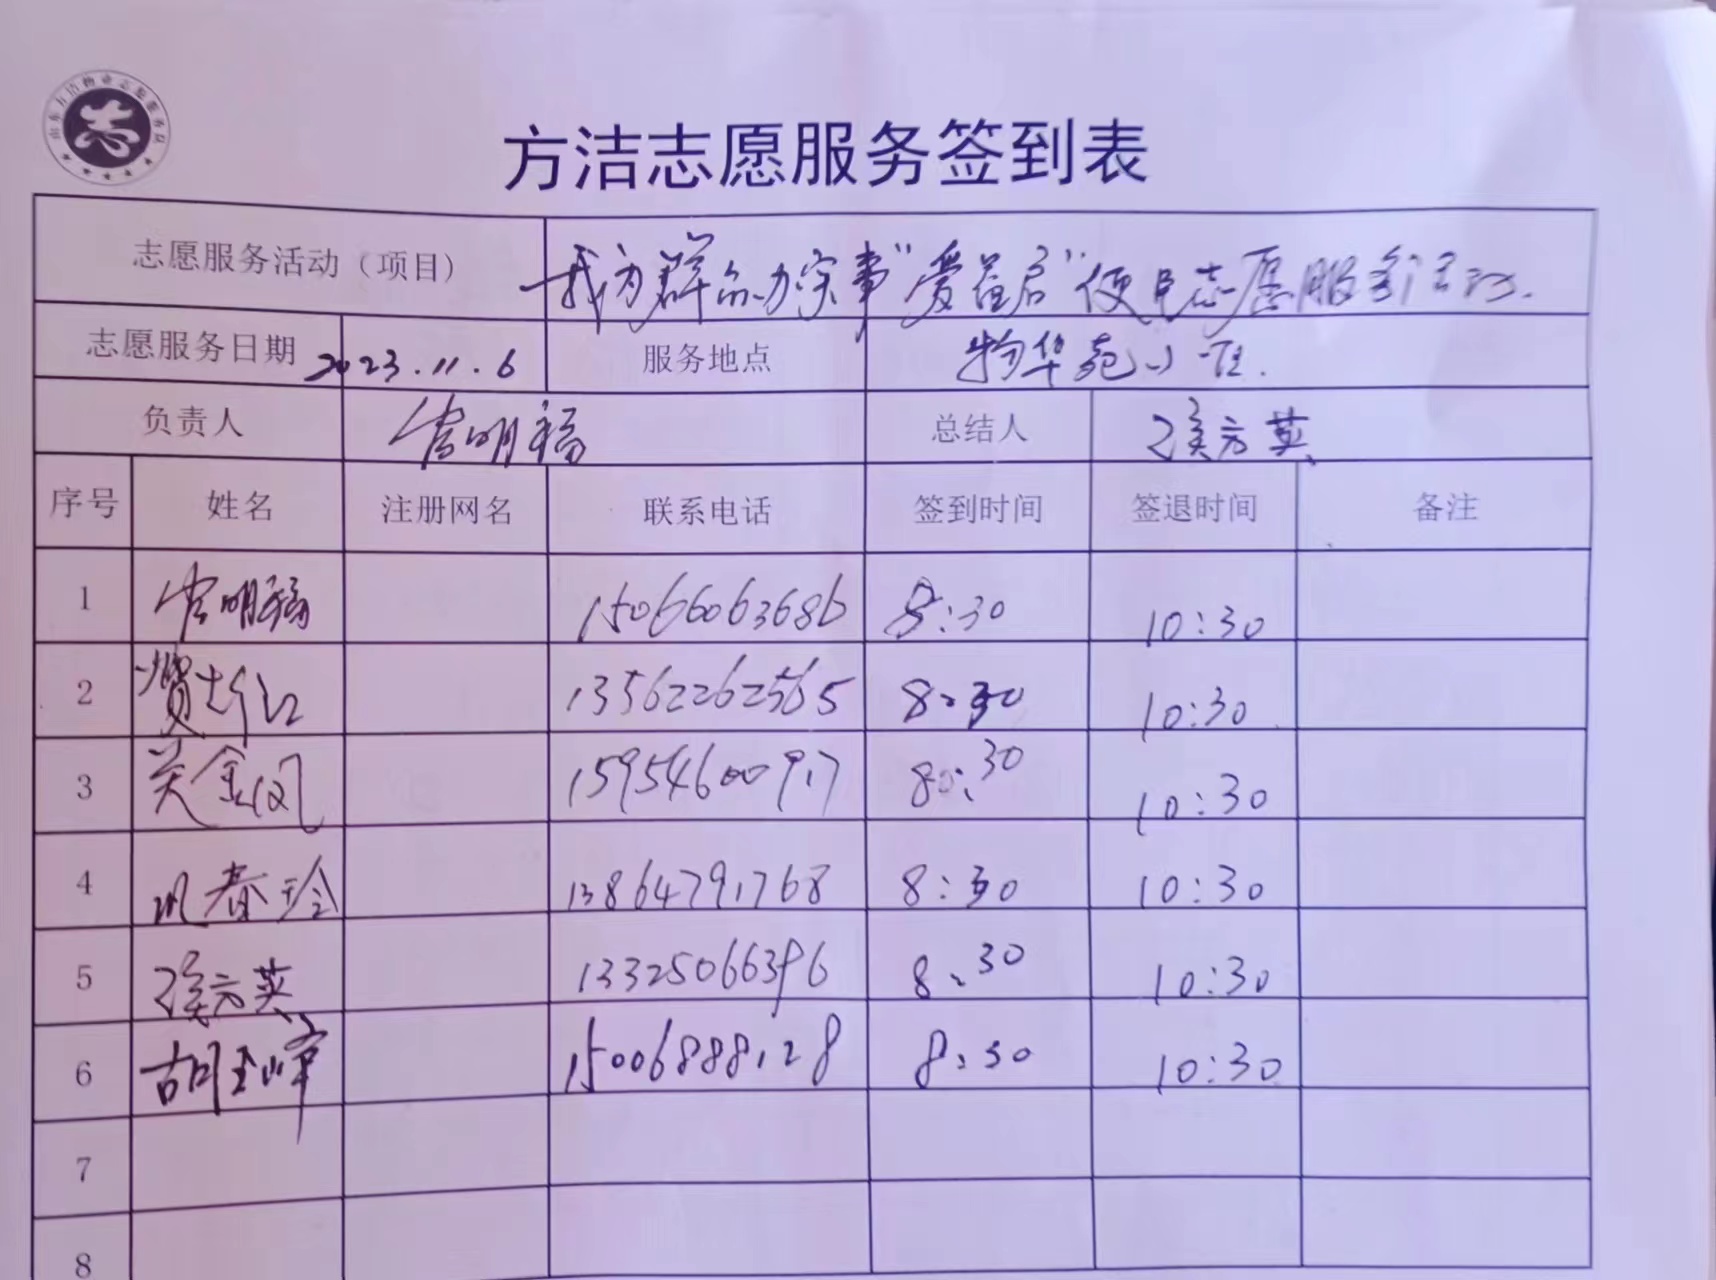 志
方洁志愿服务签到表
志愿服务活动（项目） 我为群众办实事"爱益启"便民志愿服务活动.
志愿服务日期 2023.11.6 服务地点 物华苑小区.
负责人 明福 总结人 侯方英
序号 姓名 注册网名 联系电话 签到时间 签退时间 备注
1 明福 15066063686 8:30 10:30
2 13562262565 8:30 10:30
3 金凤 15954600917 8:30 10:30
4 巩春玲 13864791768 8:30 10:30
5 侯方英 13325066396 8:30 10:30
6 胡玉峰 15006888128 8:30 10:30
7
8